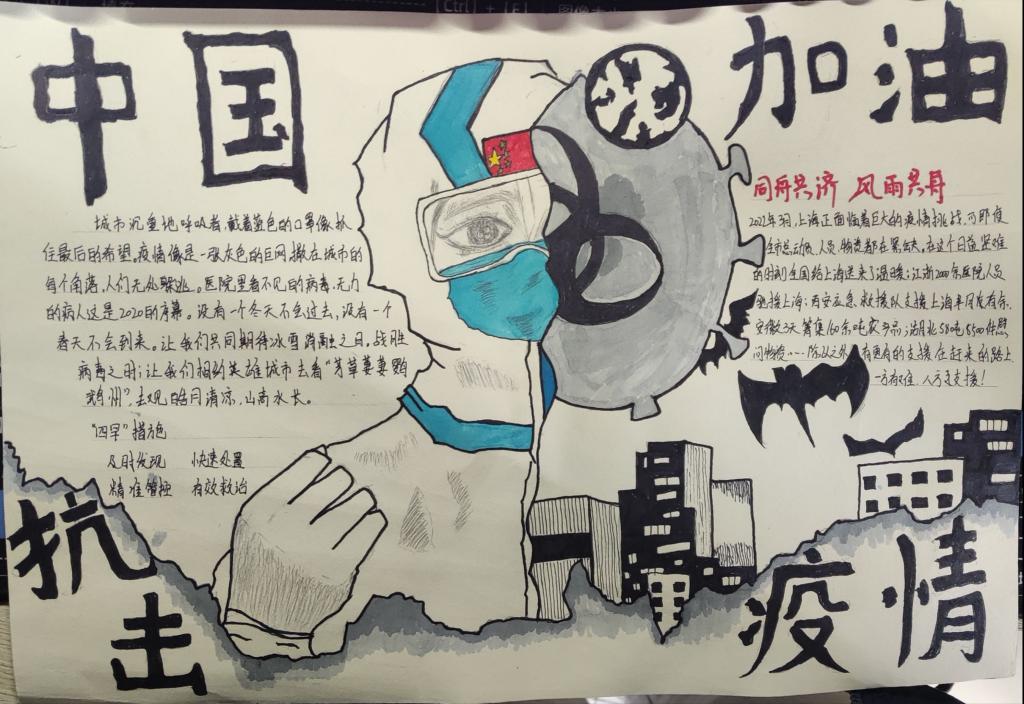 中国
加油
城市沉重地呼吸者，戴着蓝色的口罩像抓
住最后的希望。疫情像是一张灰色的巨网撒在城市的
每个角落，人们无处躲逃。医院里看不见的病毒，无力
的病人这是2020的序幕。没有一个冬天不会过去，没有一个
春天不会到来。让我们共同期待冰雪消融之日，战胜
病毒之时；让我们相约英雄城市去看“芳草萋萋鹦
鹉州”，去观皓月清凉，山高水长。
“四早”措施
及时发现 快速处置
精准管控 有效救治
同舟共济 风雨共舟
2022年初，上海正面临着巨大的疫情挑战，可即使
全市总动员，人员、物资都在紧缺。在这个日益艰难
的时刻全国给上海送来了温暖：江浙2000余医院人员
驰援上海；西安应急救援队支援上海
安徽3天筹集160余吨农产品；湖北580吨8500件慰
问物资……除此之外，有更有的支援在赶来的路上
一方有难，八方来支援！
抗击
疫情